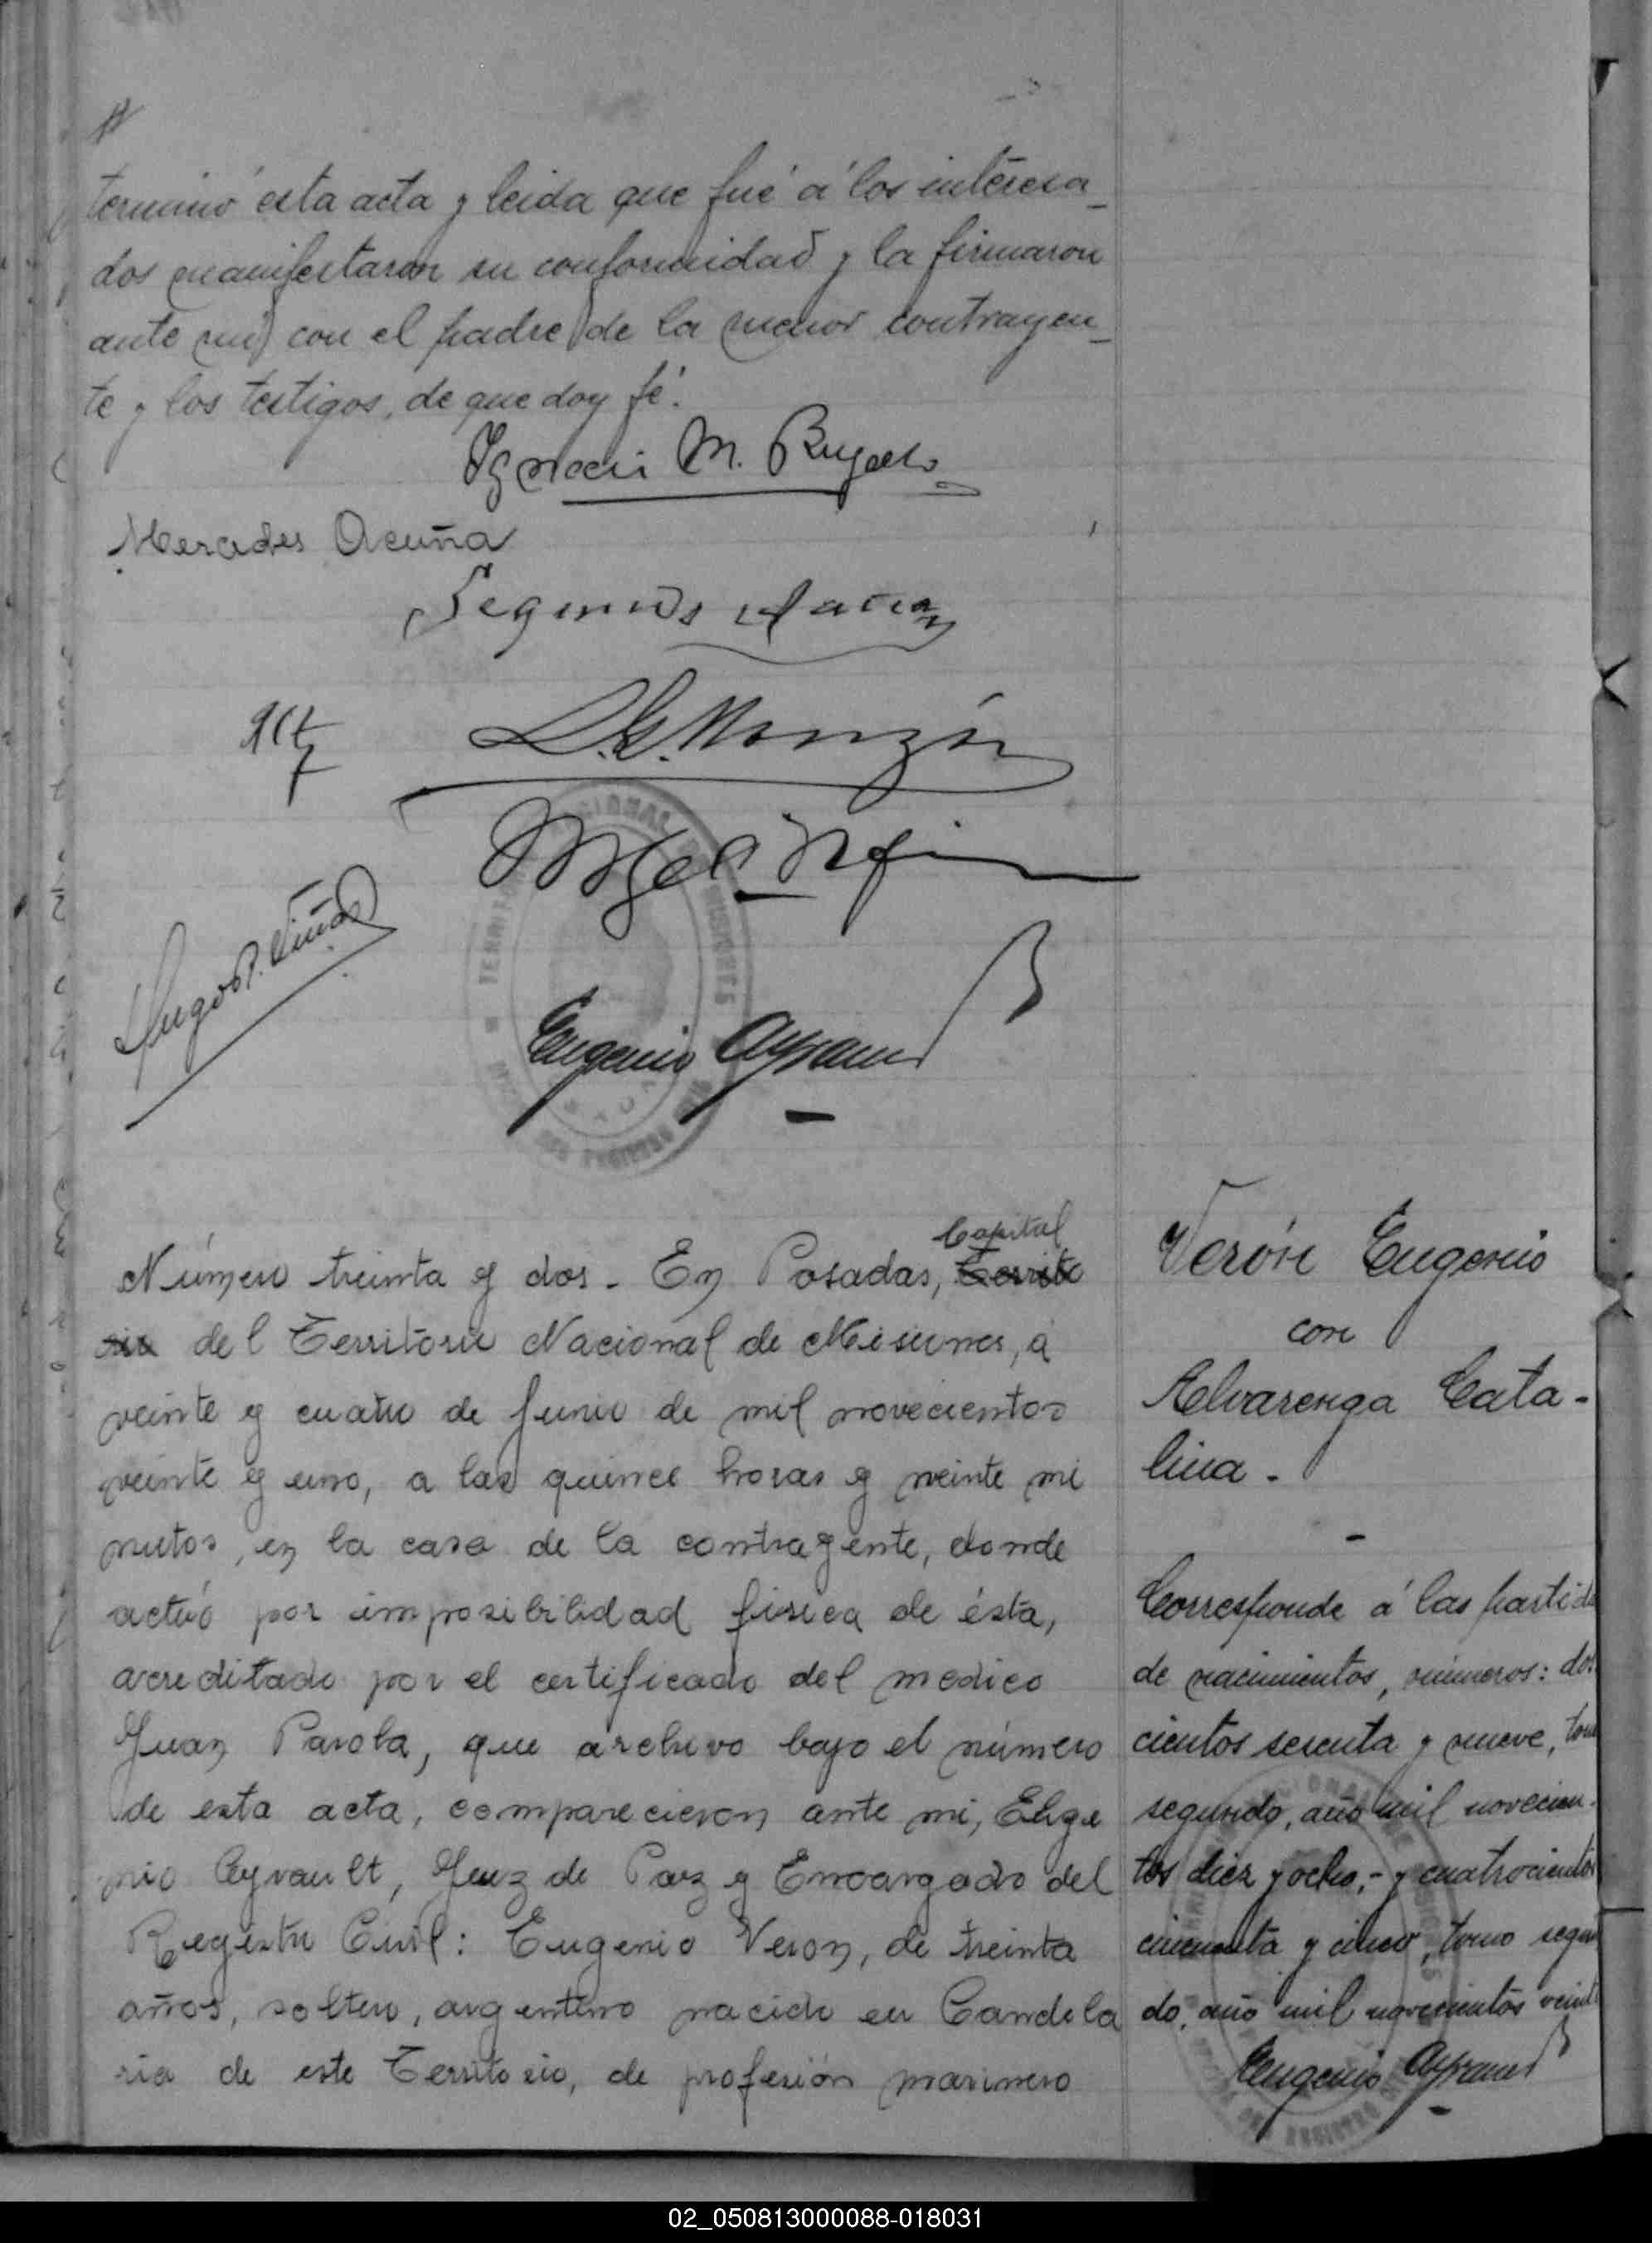 terminó esta acta y leida que fué á los interesa_
dos manifestaron su conformidad y la firmaron
ante mí con el padre de la menor contrayen_
te y los testigos, de que doy fé.
Ignacio M.
Mercedes Acuña
Segundo
D. G. Monzón
Hugo
Eugenio Ayrault
Número treinta y dos. En Posadas, Capital Territo
rio del Territorio Nacional de Misiones, á
veinte y cuatro de Junio de mil novecientos
veinte y uno, a las quince horas y veinte mi
nutos, en la casa de la contragente, donde
actúo por imposibilidad fisica de ésta,
acreditado por el certificado del medico
Juan Parola, que archivo bajo el número
de esta acta, comparecieron ante mi, Euge
nio Ayrault, Juez de Paz y Encargado del
Registro Civil: Eugenio Veron, de treinta
años, soltero, argentino nacido en Candela
ria de este Territorio, de profesión marinero
Verón Eugenio
con
Alvarenga Cata-
lina.-
Corresponde á las partida
de nacimientos, números: dos
cientos sesenta y nueve, tomo
segundo, año mil novecien-
tos diez y ocho,- y cuatrocientos
cincuenta y cinco, tomo segun
do, año mil novecientos veinte
Eugenio Ayrault
02_050813000088-018031